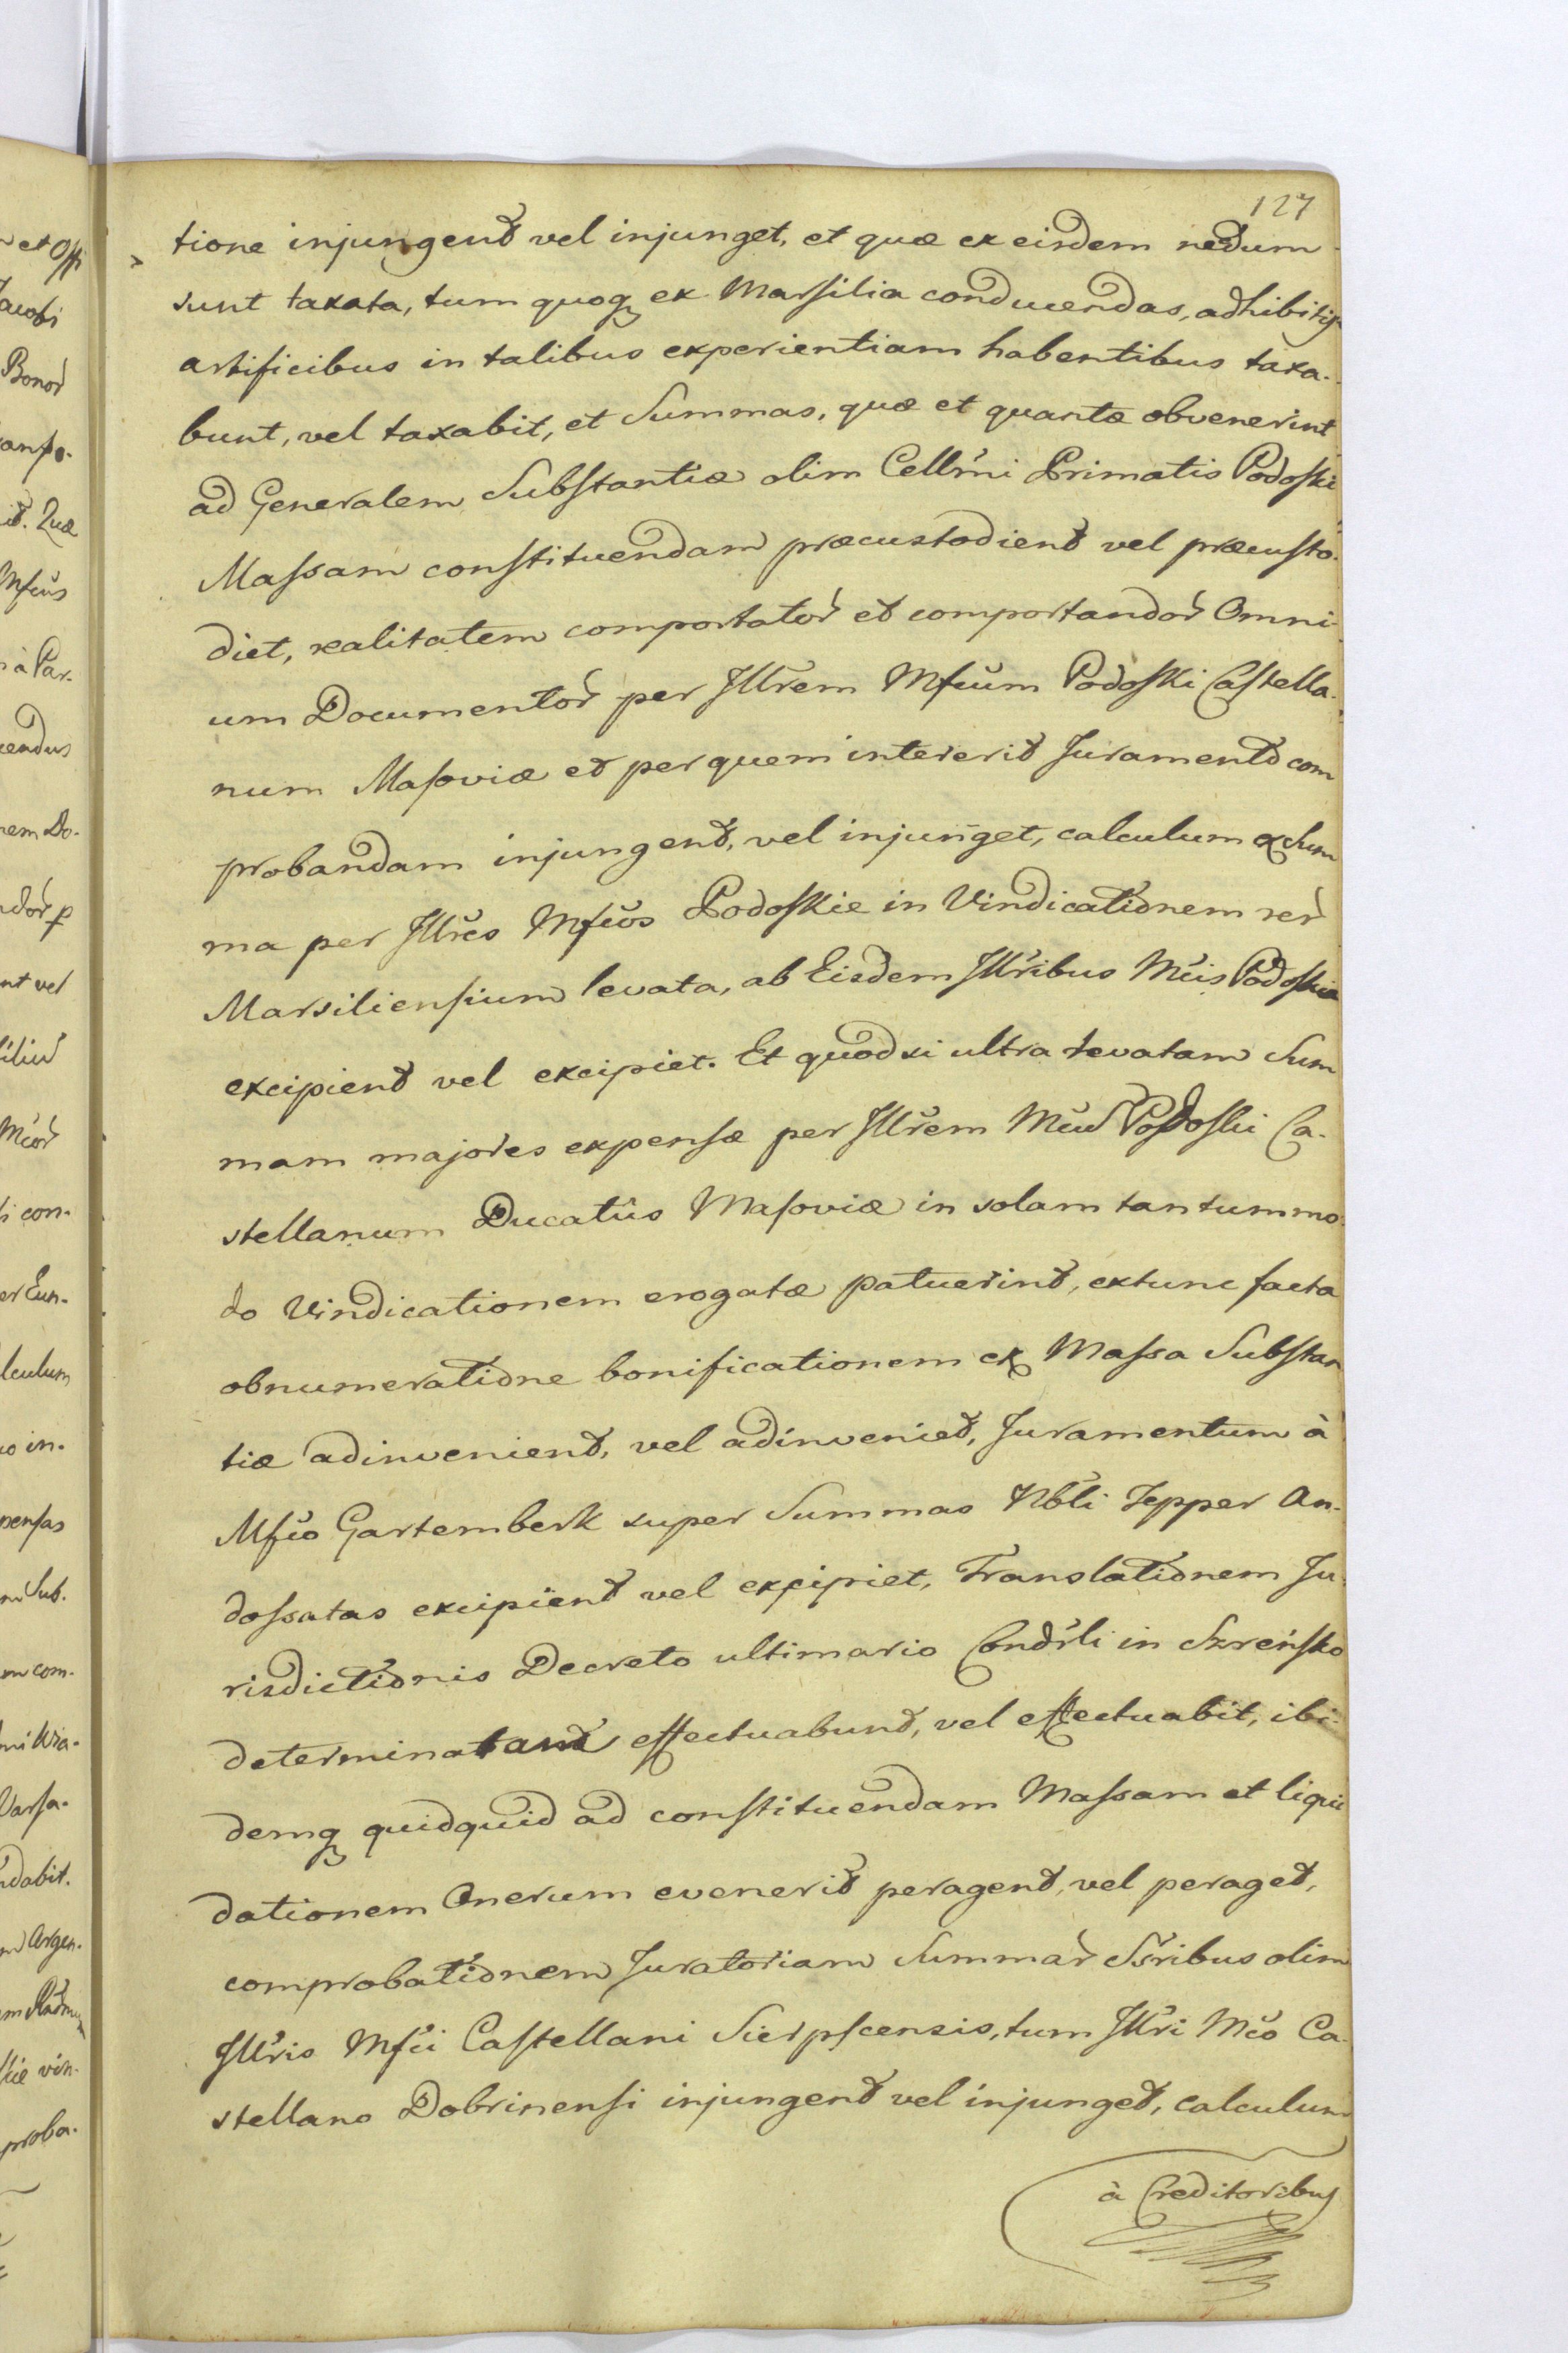 127
tione injungent vel injunget, et quæ ex eisdem nedum
sunt taxata, tum quoq ex Marsilia conducendas, adhibitis
artificibus in talibus experientiam habentibus taxa-
bunt, vel taxabit, et Summas, quæ et quantæ obvenerint
ad Generalem Substantiæ olim Cellmi Primatis Podoski
Massam constituendam præcustodient vel præcusto-
diet, realitatem comportator et comportandor Omni-
um Documentor per Illrem Mfcum Podoski Castella-
num Masoviæ et per quem intererit Juramento com
probandam injungent, vel injunget, calculum ex Sum
ma per Illres Mfcos Podoskie in Vindicationem rer
Marsiliensium levata, ab Eisdem Illribus Mcis Podoskie
excipient vel excipiet. Et quod si ultra levatam Sum
mam majores expensæ per Illrem Mcum Podoski Ca-
stellanum Ducatûs Masoviæ in solam tantummo-
do Vindicationem erogatæ patuerint, extunc facta
obnumeratione bonificationem ex Massa Substan
tiæ adinvenient, vel adinveniet, Juramentum à
Mfco Gartemberk super Summas Nbli Tepper An-
dossatas excipient vel excipiet, Translationem Ju-
risdictionis Decreto ultimario Condrli in Szreńsko
determinatam effectuabunt, vel effectuabit, ibi-
demq quidquid ad constituendam Massam et liqui
dationem Onerum evenerit peragent, vel peraget,
comprobationem Juratoriam Summar Ssribus olim
Illris Mfci Castellani Sierpscensis, tum Illri Mco Ca-
stellano Dobrinensi injungent vel injunget, calculum
à Creditoribus